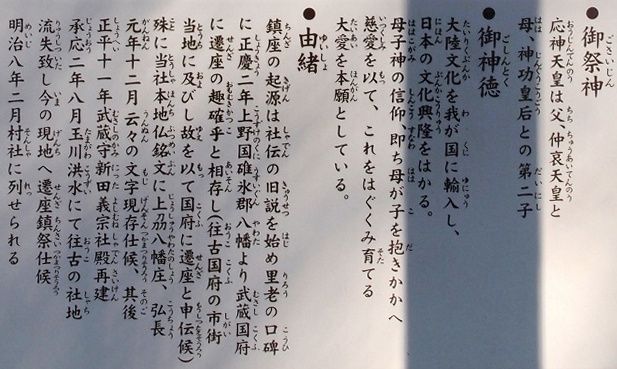 ●御祭神
応神天皇は父、仲哀天皇と
母、神功皇后との第二子
●御神徳
大陸文化を我が国に輸入し、
日本の文化興隆をはかる。
母子神の信仰、即ち母が子を抱きかかへ
慈愛を以て、これをはぐくみ育てる
大愛を本願としている。
●由緒
鎮座の起源は社伝の旧説を始め里老の口碑
に正慶二年上野国碓氷郡八幡より武蔵国府
に遷座の趣確乎と相存し(往古国府の市街
当地に及ぼし故を以て国府に遷座と申伝候)
殊に当社本地仏銘文に上刕八幡庄、弘長
元年十二月云々の文字現存仕候、其後
正平十一年武蔵守新田義宗社殿再建
承応二年八月玉川洪水にて往古の社地
流失致し今の現地へ遷座鎮祭仕候
明治八年二月村社に列せられる